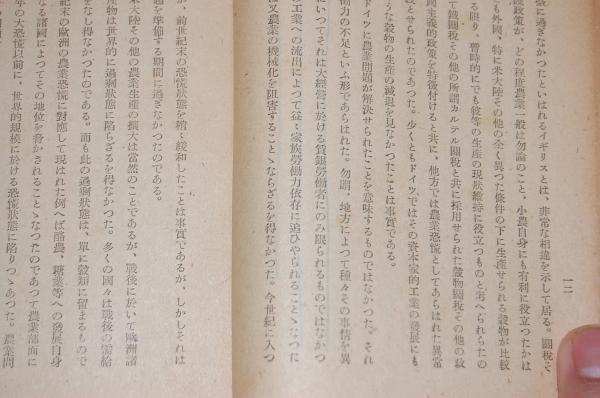 一二
張に過ぎなかつたといはれるイギリスとは、非常な相違を示して居る。關税そ
護政策が、どの程度農業一般は勿論のこと、小農自身にも有利に役立つたかは
も外國、特に米大陸その他の全く異つた條件の下に生産せられる穀物が比較
る限り、暫時的にでも彼等の生産の現狀維持に役立つものと考へられたの
て鐵關税その他の所謂カルテル關税と共に採用せられた穀物關税その他の政
國主義的政策を特徴付けると共に、他方では農業恐慌としてあらはれた異常
段とせられたのであつた。少くともドイツではその資本家的工業の發展にも
うな穀物の生産の減退を見なかつたことは事實である。
ドイツに農業問題が解決せられたことを意味するものではなかつた。それ
働力の不足といふ形であらはれた。勿論、地方によつて種々その事情を異
にいつてそれは大經營に於ける賃銀勞働者にのみ限られるものではなかつ
の工業への流出によつて益々家族勞働力依存に追ひやられることゝなつた
は又農業の機械化を阻害することゝならざるを得なかつた。今世紀に入つ
が、前世紀末の恐慌狀態を稍々緩和したことは事實であるが、しかしそれは
題を準備する期間に過ぎなかつたのである。
米大陸その他の農業生産の擴大は當然のことであるが、戰後に於いて歐洲諸
産物は世界的に過剩狀態に陷らざるを得なかつた。多くの國々は戰後の需給
をなし得なかつたのである。而も此の過剩狀態は、單に穀類に留まるもので
紀末の歐洲の農業恐慌に對應して現はれた例へば酪農、糖業等への發展自身
なる諸國によつてその地位を脅かされることゝなつたのであつて農業部面に
年の大恐慌以前に、世界的規模に於ける恐慌狀態に陷りつゝあつた。農業問